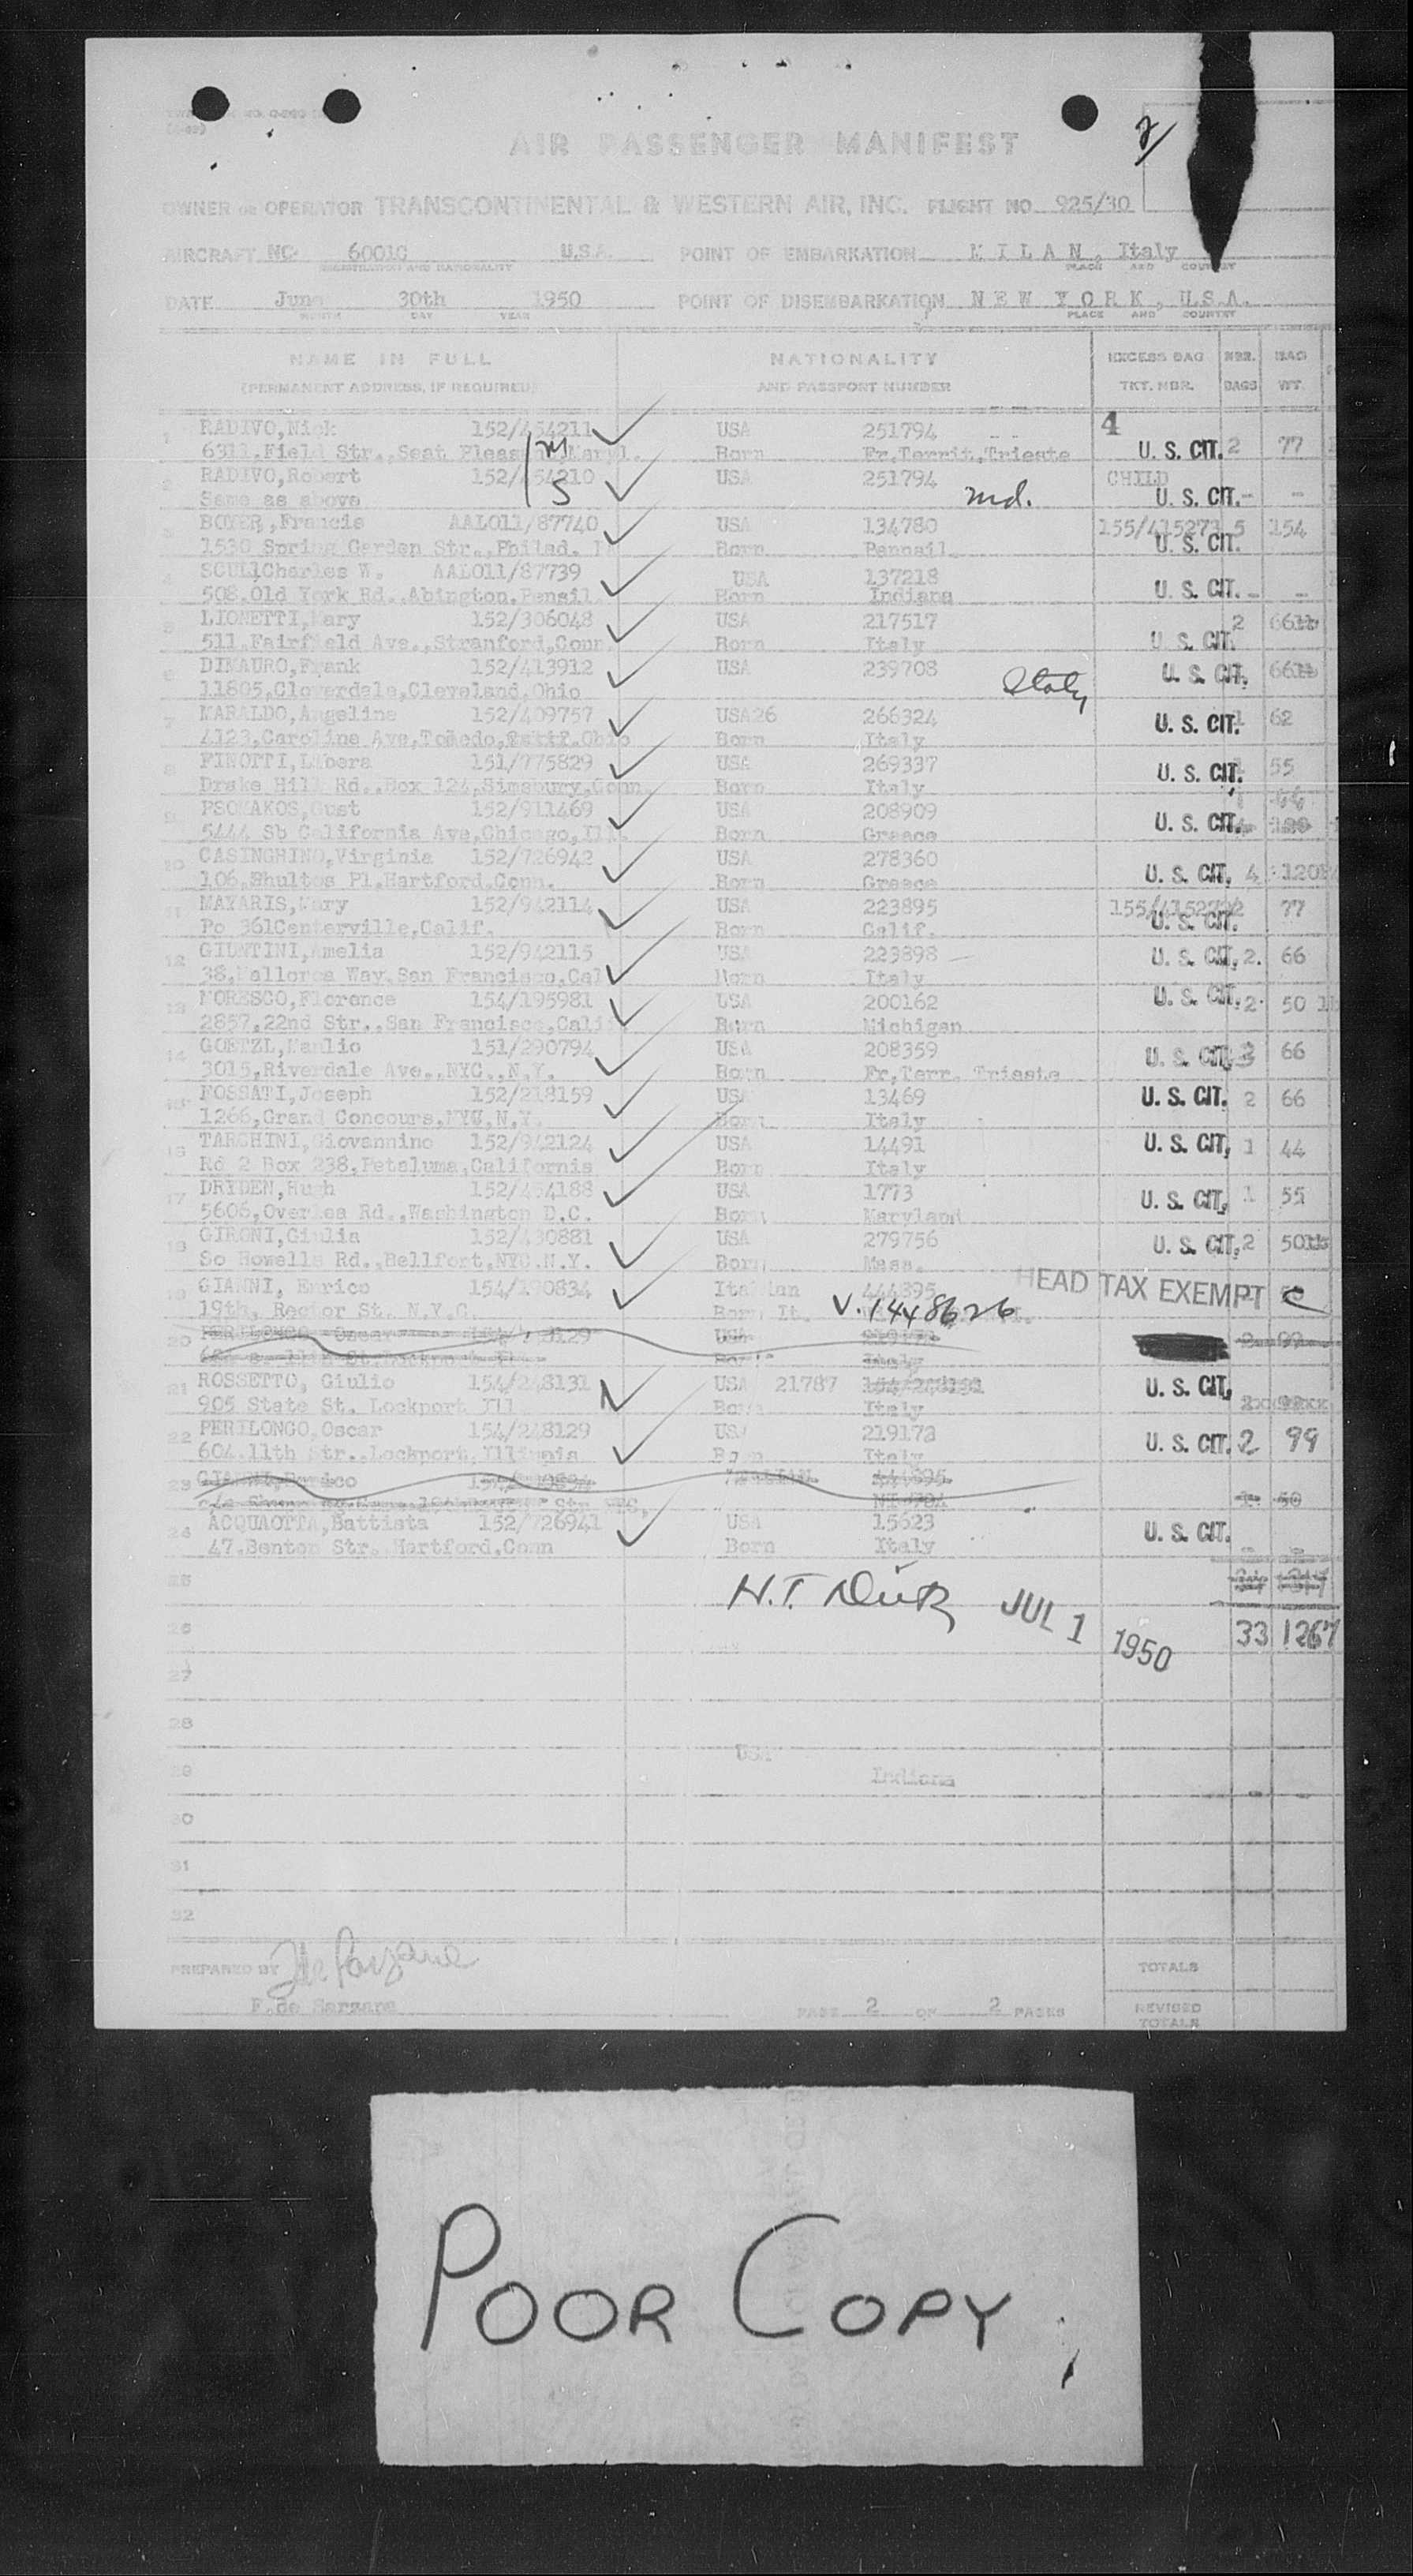 2/
AIR PASSENGER MANIFEST
OWNER OR OPERATOR TRANSCONTINENTAL & WESTERN AIR, INC. FLIGHT NO 925/30
AIRCRAFT NO. 6001C U.S.A. POINT OF EMBARKATION M I L A N , Italy
REGISTRATION AND NATIONALITY PLACE AND COUNTRY
DATE June 30th 1950 POINT OF DISEMBARKATION N E W Y O R K , U.S.A.
MONTH DAY YEAR PLACE AND COUNTRY
NAME IN FULL NATIONALITY EXCESS BAG NBR. BAG
(PERMANENT ADDRESS, IF REQUIRED) AND PASSPORT NUMBER TKT. NBR. BAGS WT.
1 RADIVO,Nick 152/454211 USA 251794 4
6311,Field Str.,Seat Pleasant,Maryl. M Born Fr.Territ.Trieste U. S. CIT. 2 77
2 RADIVO,Robert 152/454210 USA 251794 CHILD
Same as above S md. U. S. CIT. - -
3 BOYER,Francis AAL011/87740 USA 134780 155/415273 5 154
1530 Spring Garden Str.,Philad. Born Pennsil. U. S. CIT.
4 SCULL,Charles W. AAL011/87739 USA 137218
508,Old York Rd.,Abington,Pensil. Born Indiana U. S. CIT. - -
5 LIONETTI,Mary 152/306048 USA 217517 2 66
511,Fairfield Ave.,Stranford,Conn. Born Italy U. S. CIT.
6 DIMAURO,Frank 152/413912 USA 239708 U. S. CIT. 66
11805,Cloverdale,Cleveland,Ohio Italy
7 MARALDO,Angelina 152/409757 USA26 266324 U. S. CIT. 1 62
4123,Caroline Ave,Toledo, Ohio Born Italy
8 FINOTTI,Libera 151/775829 USA 269337 U. S. CIT. 1 55
Drake Hill Rd.,Box 124,Simsbury,Conn. Born Italy
9 PSOMAKOS,Gust 152/911469 USA 208909 1 44
5444 Sb California Ave,Chicago,Ill. Born Greece U. S. CIT.
10 CASINGHINO,Virginia 152/726942 USA 278360
106,Shultos Pl.Hartford.Conn. Born Greece U. S. CIT. 4 120
11 MAYARIS,Mary 152/942114 USA 223895 155/415272 2 77
Po 361Centerville,Calif. Born Calif. U. S. CIT.
12 GIUNTINI,Amelia 152/942115 USA 223898 U. S. CIT. 2. 66
38,Mallorca Way.San Francisco.Cal Born Italy
13 MORESCO,Florence 154/195981 USA 200162 U. S. CIT. 2 50
2857,22nd Str.,San Francisco,Cali Born Michigan
14 GOETZL,Manlio 151/290794 USA 208359 U. S. CIT. 3 66
3015,Riverdale Ave.,NYC.,N.Y. Born Fr.Terr. Trieste
15 FOSSATI,Joseph 152/218159 USA 13469 U. S. CIT. 2 66
1266,Grand Concours,NYC,N.Y. Born Italy
16 TARCHINI,Giovannino 152/942124 USA 14491 U. S. CIT. 1 44
Rd 2 Box 238,Petaluma,California Born Italy
17 DRYDEN,Hugh 152/454188 USA 1773 U. S. CIT. 1 55
5606,Overlea Rd.,Washington D.C. Born Maryland
18 GIRONI,Giulia 152/430881 USA 279756 U. S. CIT. 2 50
So Howells Rd.,Bellfort,NYC.N.Y. Born Mass.
19 GIANNI, Enrico 154/190834 Italian 444895 HEAD TAX EXEMPT
19th, Rector St. N.Y.C. Born It. V. 1448626
20 PERILONGO Oscar USA
Born Italy
21 ROSSETTO, Giulio 154/248131 USA 21787 U. S. CIT.
905 State St. Lockport Ill Born Italy
22 PERILONGO,Oscar 154/248129 USA 219173 U. S. CIT. 2 99
604.11th Str.,Lockport,Illinois Born Italy
23 GIANNI,Enrico ITALIAN
1 50
24 ACQUAOTTA,Battista 152/726941 USA 15623 U. S. CIT.
47.Benton Str. Hartford.Conn Born Italy - -
25 H.T. JUL 1 1950
26 33 1267
27
28
USA
29 Indiana
30
31
32
PREPARED BY TOTALS
F.de Sarzana PAGE 2 OF 2 PAGES REVISED TOTALS
POOR COPY